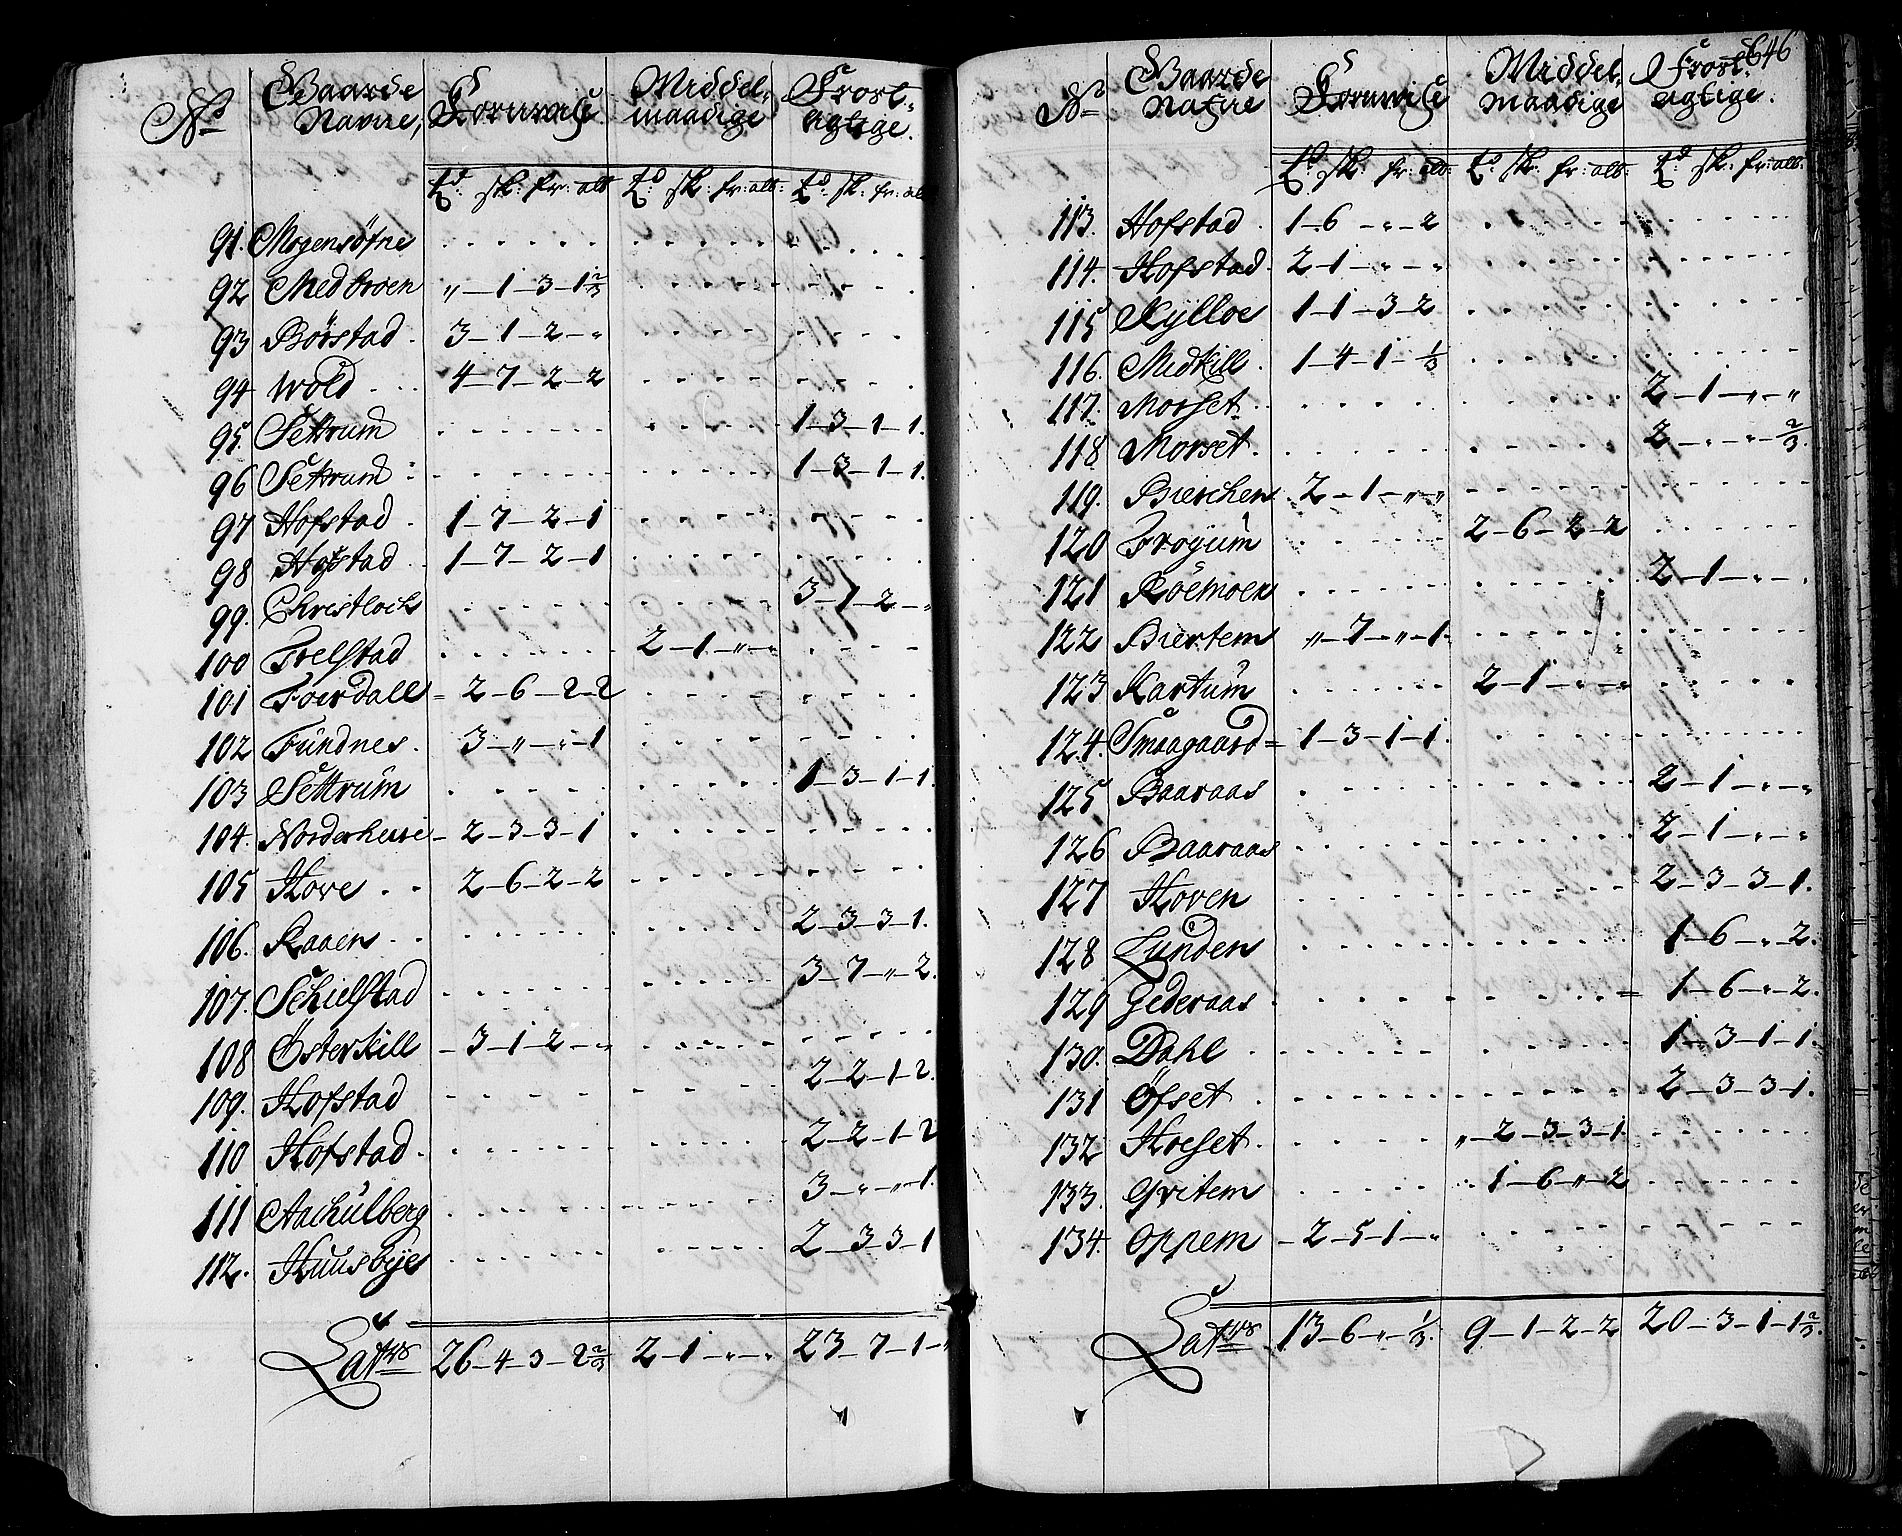 No Gaarde Kornvise Middel- Frost-
Navne, maadige agtige.
td: sk: fr: alb td: sk: fr: alb: td: sk: fr: alb
91. Mogensöfne
92 Medbroen " - 1 - 3 - 1 2/3
93 Börstad 3 - 1 - 2 - "
94 Wold 4 - 7 - 2 - 2
95 Settrum 1 - 3 - 1 - 1.
96 Settrum 1 - 3 - 1 - 1.
97 Hofstad 1 - 7 - 2 - 1
98 Hofstad 1 - 7 - 2 - 1
99. Christloch 3 - 1 - 2 - "
100 Frelstad 2 - 1 - " - "
101 Foerdall 2 - 6 - 2 - 2
102 Fundnes. 3 - " - " - 1
103 Settrum 1 - 3 - 1 - 1
104. Norderhuse 2 - 3 - 3 - 1
105 Hove 2 - 6 - 2 - 2
106. Raaen 2 - 3 - 3 - 1.
107. Schielstad 3 - 7 - " - 2.
108 Österkill 3 - 1 - 2 - "
109. Hofstad 2 - 2 - 1 - 2.
110 Hofstad 2 - 2 - 1 - 2
111 Aachulberg 3 - " - " - 1
112. Huusbye 2 - 3 - 3 - 1
Latus 26 - 4 - 3 - 2 2/3 2 - 1 - " - " 23 - 7 - 1 - "
646
No Gaarde Kornvise Middel- Frost-
Nafne maadige agtige.
td: sk: fr: alb: td: sk: fr: alb: td: sk: fr: alb:
113. Hofstad 1 - 6 - " - 2
114. Hofstad 2 - 1 - " - "
115 Kylloe 1 - 1 - 3 - 2
116. Midkill 1 - 4 - 1 - 1/3
117. Morset 2 - 1 - " - "
118 Morset 2 - " - " - 2/3.
119. Bierchen 2 - 1 - " - "
120 Froyum 2 - 6 - 2 - 2
121 Röemoen 2 - 1 - " -
122 Biertem " - 7 - " - 1.
123 Kartum 2 - 1 - " - "
124. Smaagaard 1 - 3 - 1 - 1
125 Baaraas 2 - 1 - " - "
126 Baaraas 2 - 1 - " - "
127 Hoven 2 - 3 - 3 - 1.
128 Lunden 1 - 6 - " - 2.
129 Gederaas 1 - 6 - " - 2.
130. Dahl 1 - 3 - 1 - 1.
131 Öfset 2 - 3 - 3 - 1.
132 Hoeset 2 - 3 - 3 - 1
133. Gvitem 1 - 6 - " - 2
134. Oppem 2 - 5 - 1 - "
Latus 13 - 6 - " - 1/3. 9 - 1 - 2 - 2 20 - 3 - 1 - 1 2/3.